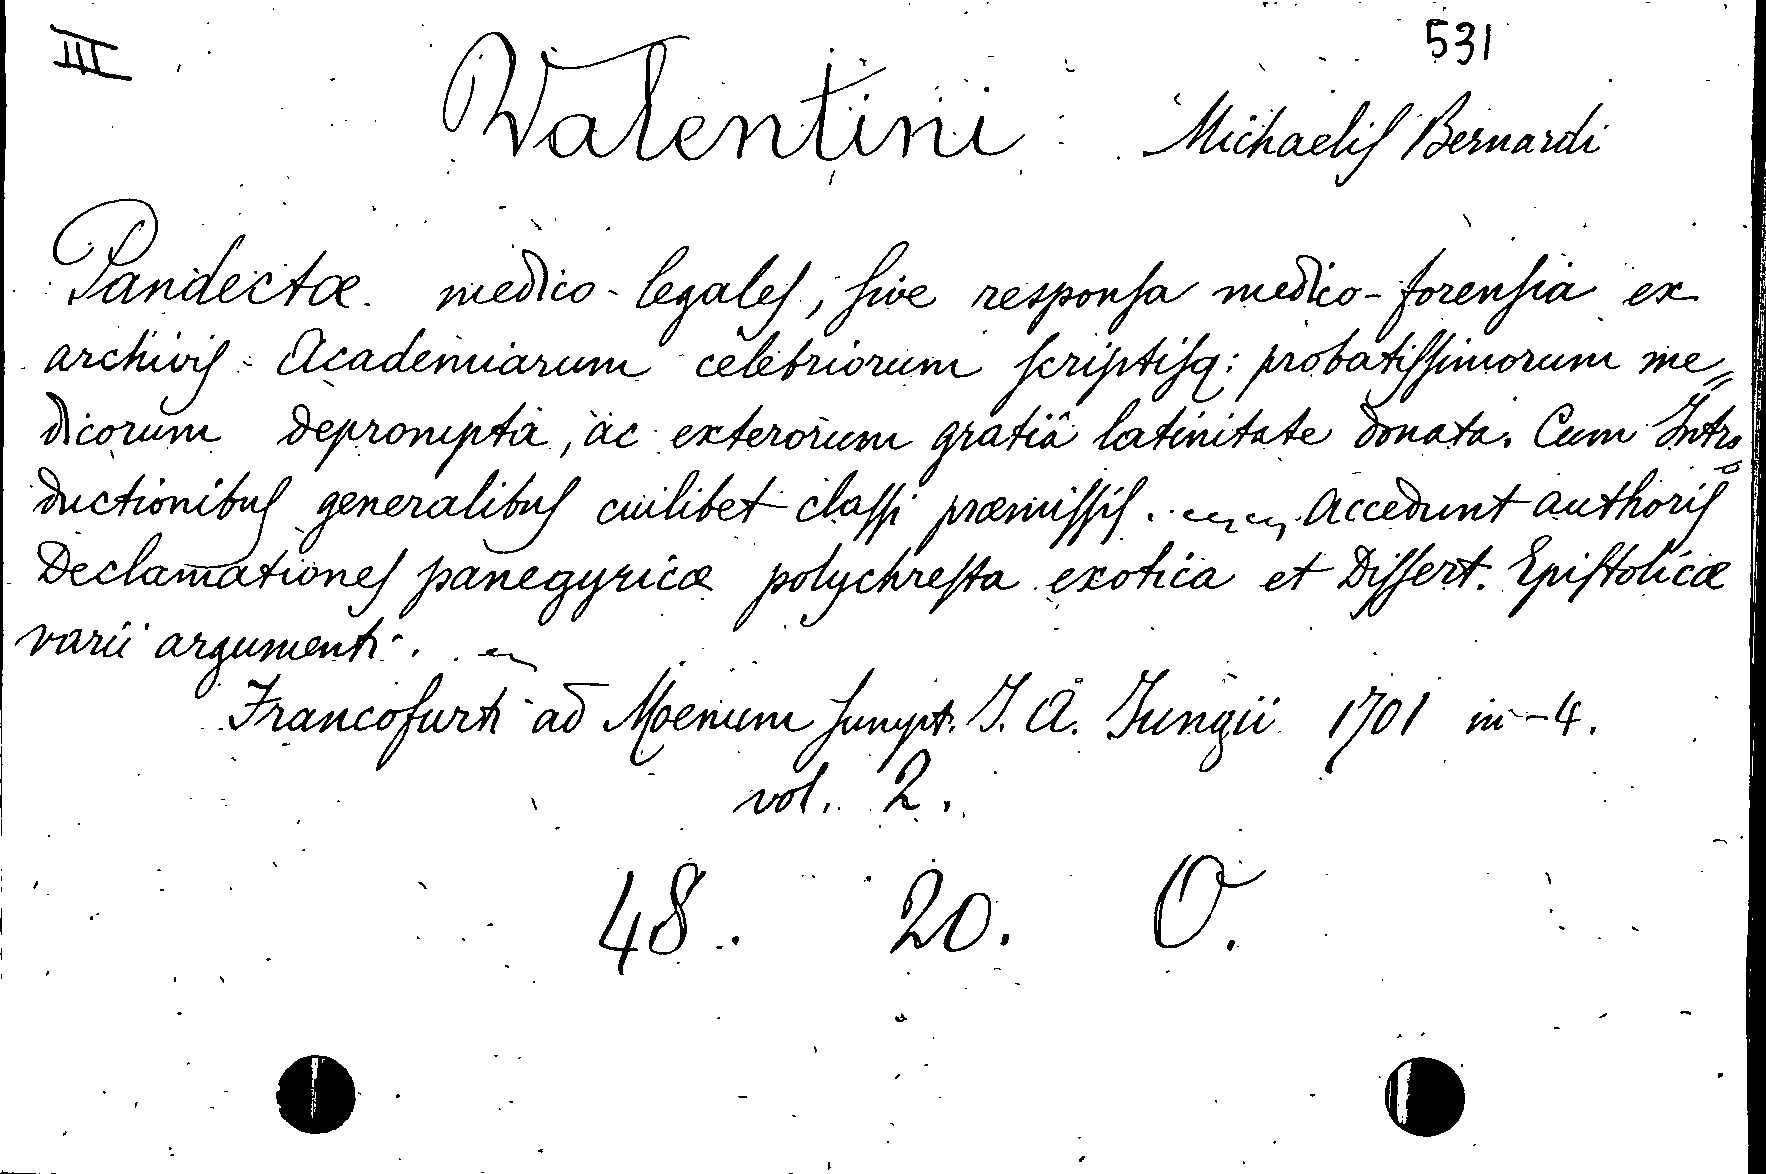 III
531
Valentini Michaelis Bernardi
Pandectæ medico-legales, sive responsa medico-forensia ex
archivis Academiarum celebriorum scriptisq: probatissimorum me=
dicorum deprompta, ac exterorum gratiâ latinitate donata. Cum Intro=
ductionibus generalibus cuilibet classi præmissis. Accedunt authoris
Declamationes panegyricæ polychresta exotica et Dissert. Epistolicæ
varii argumenti.
Francofurti ad Moenum sumpt. J. A. Jungii 1701 in-4.
vol. 2.
48. 20. O.